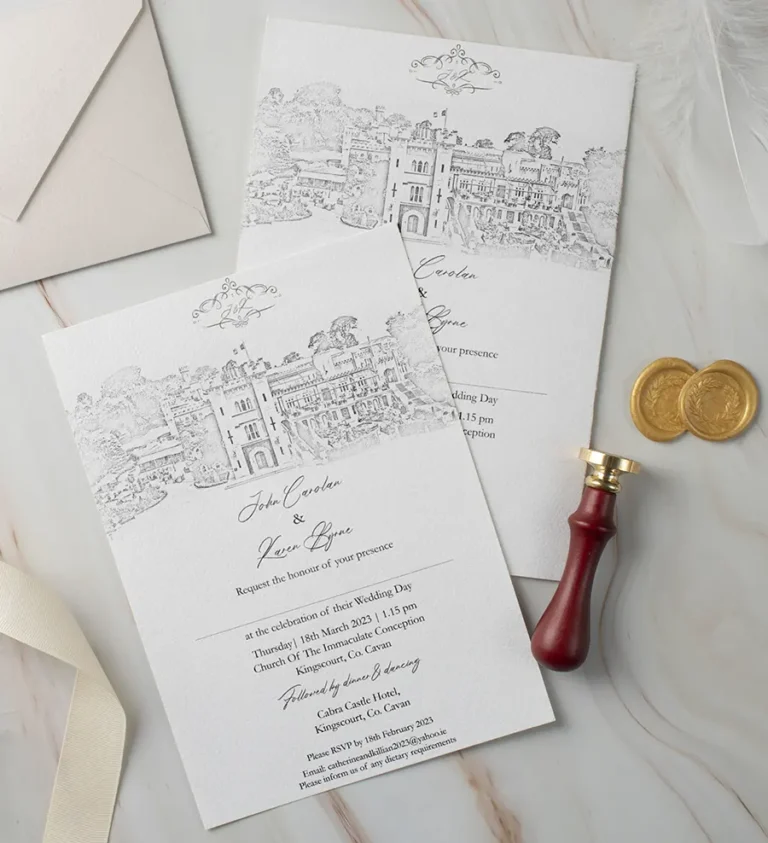 John Carolan
&
Karen Byrne
Request the honour of your presence
at the celebration of their Wedding Day
Thursday| 18th March 2023 | 1.15 pm
Church Of The Immaculate Conception
Kingscourt, Co. Cavan
Followed by dinner & dancing
Cabra Castle Hotel,
Kingscourt, Co. Cavan
Please RSVP by 18th February 2023
Email: catherineandkillian2023@yahoo.ie
Please inform us of any dietary requirements
Carolan
&
Byrne
your presence
dding Day
1.15 pm
ception